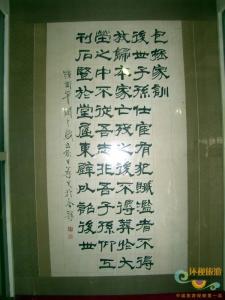 包拯家訓
後世子孫仕宦有犯贓濫者不得
放歸本家亡歿之後不得葬於大
塋之中不從吾志非吾子孫仰
刊石豎於堂屋東壁以詔後世
环视旅游